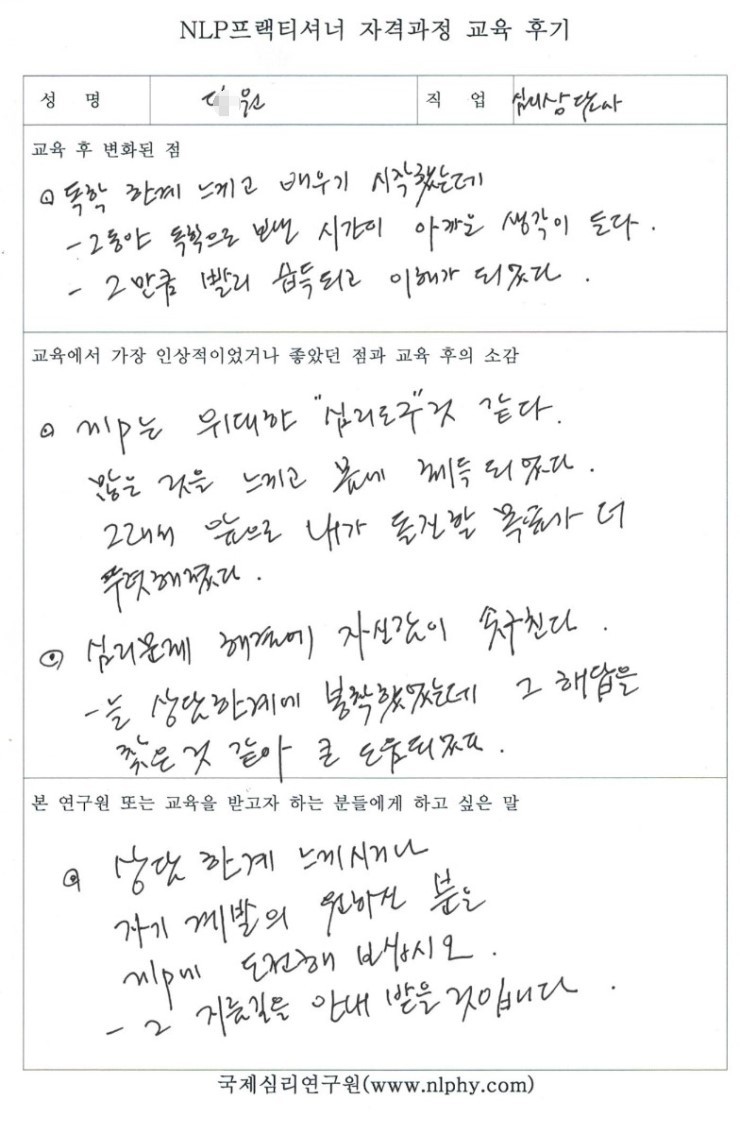 NLP프랙티셔너 자격과정 교육 후기
성 명 원 직 업 심리상담사
교육 후 변화된 점
독학 한계 느끼고 배우기 시작했는데
- 그동안 독학으로 보낸 시간이 아까운 생각이 든다.
- 그만큼 빨리 습득되고 이해가 되었다.
교육에서 가장 인상적이었거나 좋았던 점과 교육 후의 소감
nlp는 위대한 "심리도구"것 같다.
많은 것을 느끼고 몸에 체득되었다.
그래서 앞으로 내가 돌진할 목표가 더
뚜렷해졌다.
심리문제 해결에 자신감이 솟구친다.
- 늘 상담한계에 봉착했었는데 그 해답을
찾은 것 같아 큰 도움되었다.
본 연구원 또는 교육을 받고자 하는 분들에게 하고 싶은 말
상담 한계 느끼시거나
자기 계발의 원하신 분은
nlp에 도전해 보십시오.
- 그 지름길을 안내 받을 것입니다.
국제심리연구원(www.nlphy.com)